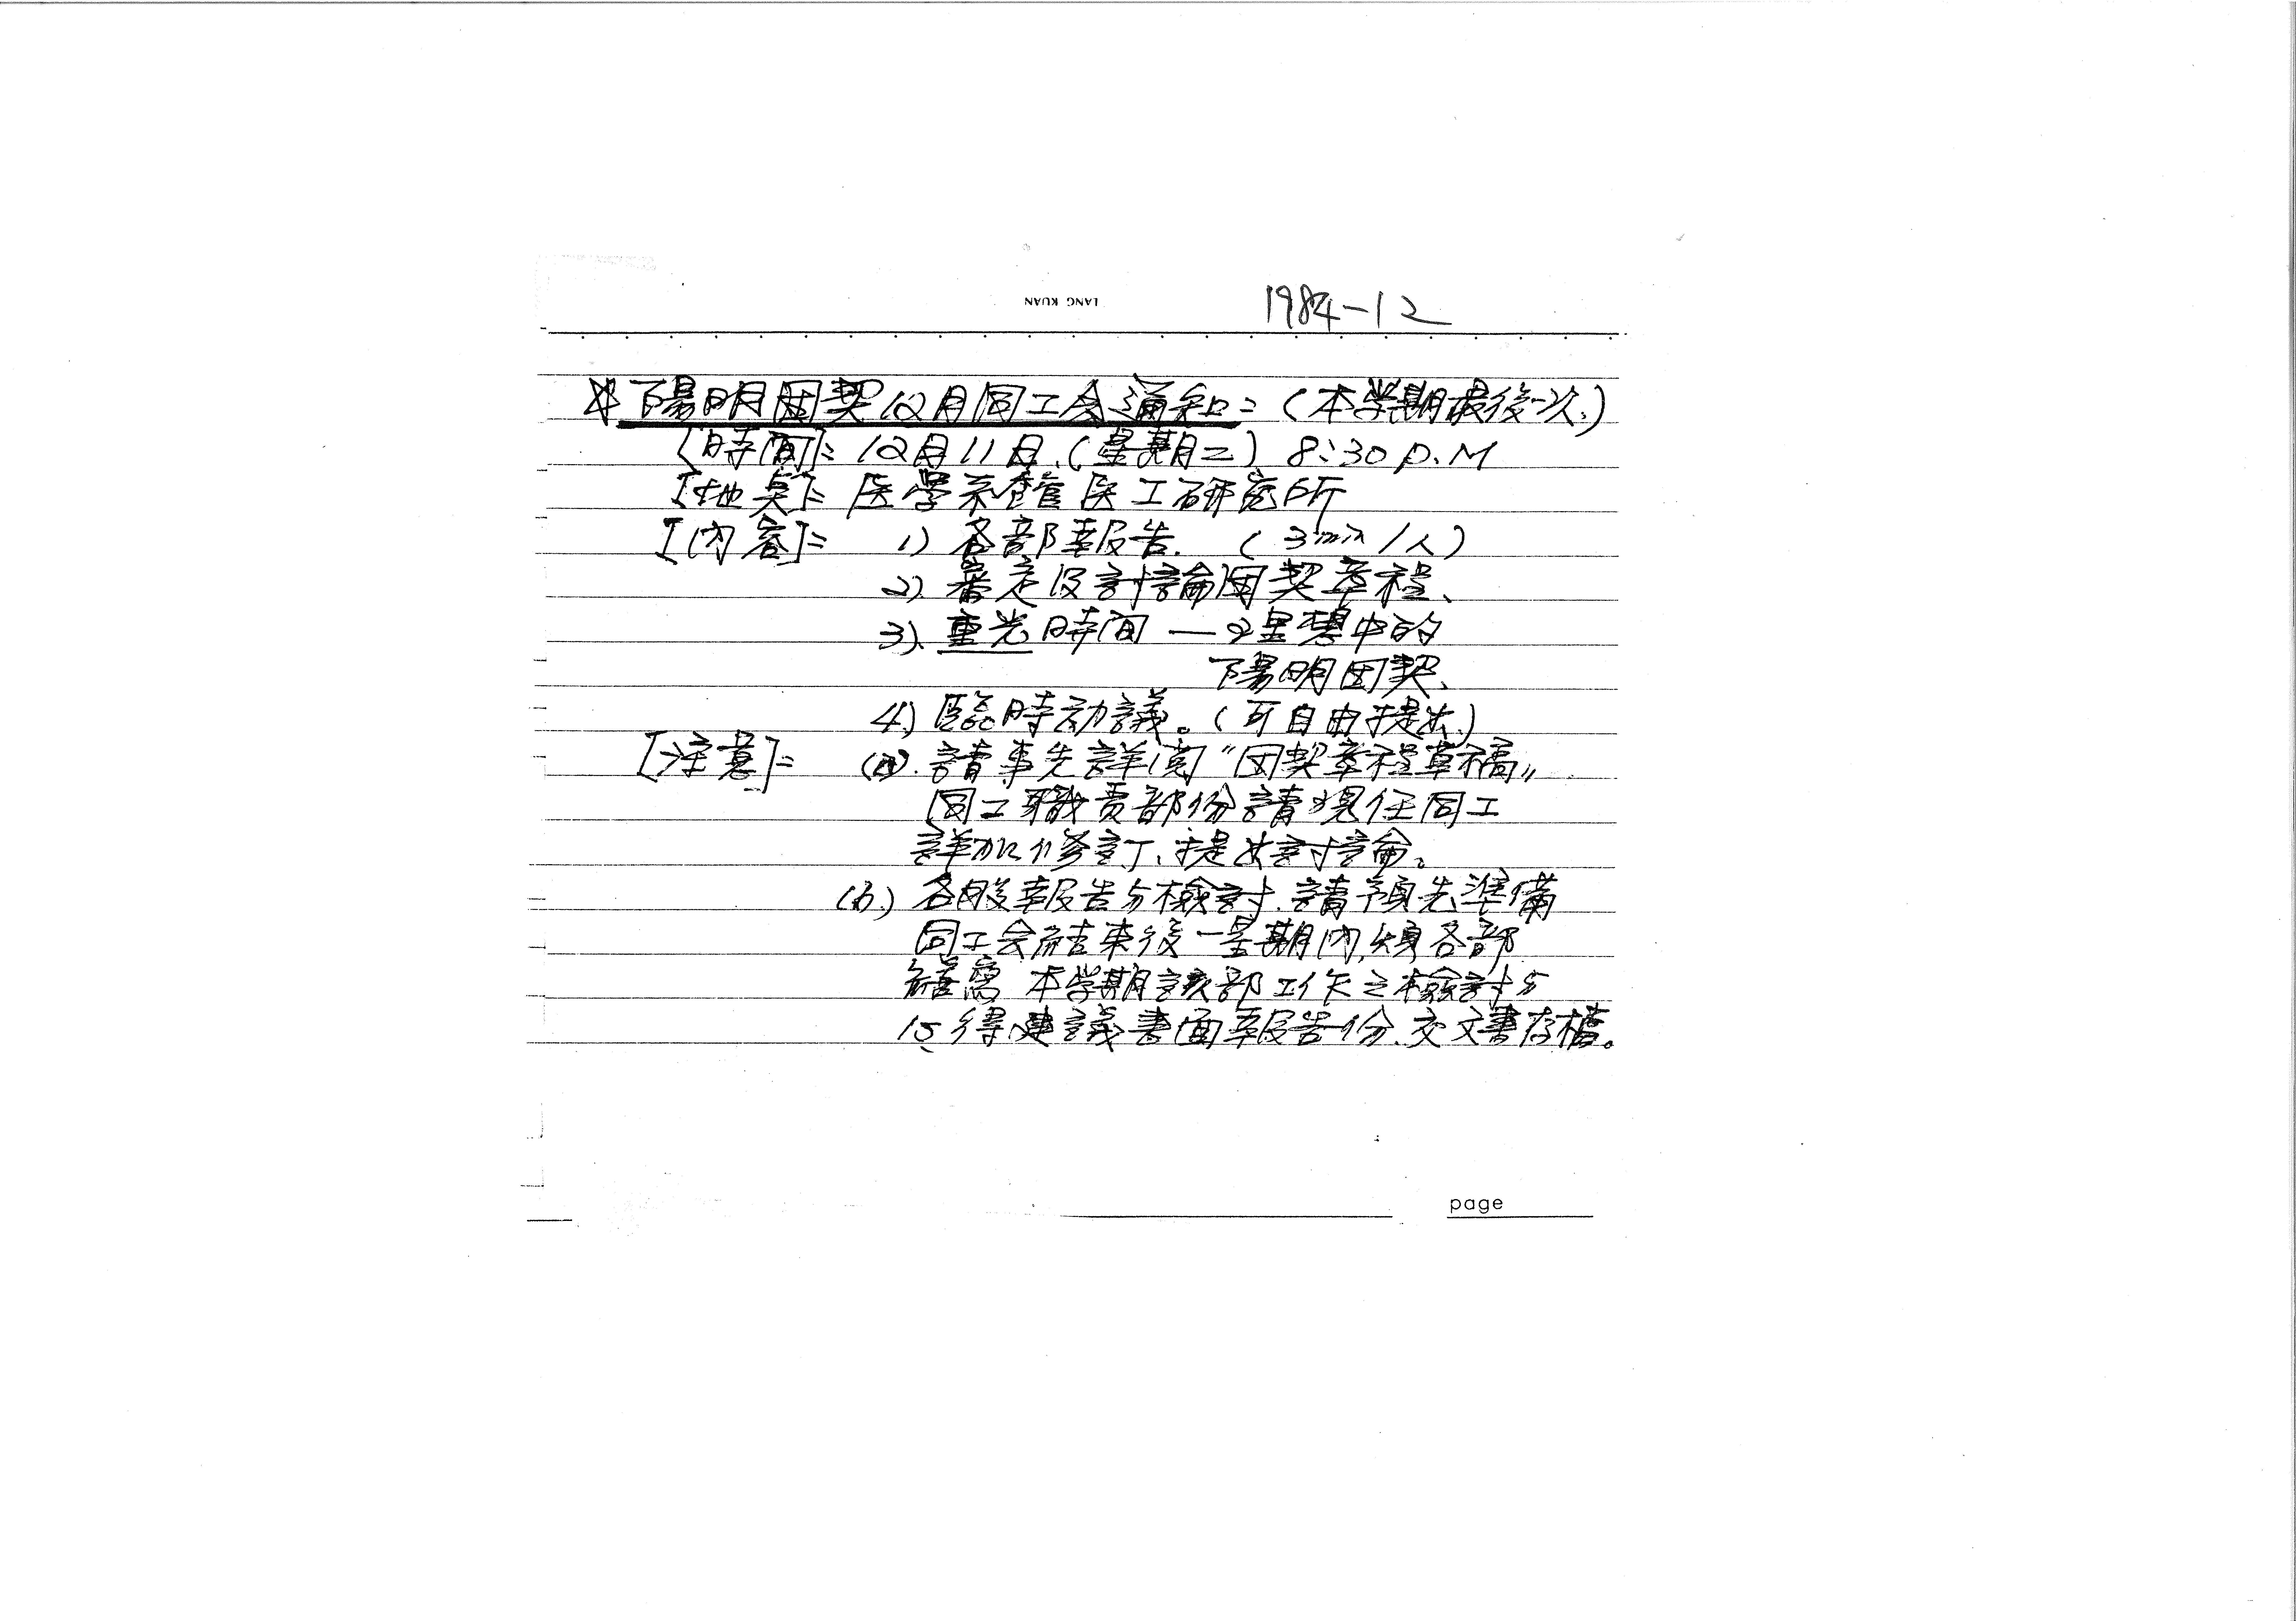 LANG KUAN
1984-12
※陽明团契12月同工会通知:(本学期最後一次.)
[時間]: 12月11日.(星期二) 8:30 P.M
[地点]: 医学系館医工研究所
[內容]: 1) 各部報告. (3min/人)
2) 審定及討論团契章程、
3). 重光時間 — 理想中的
陽明团契、
4) 臨時动議。(可自由提出)
[注意]: (a). 請事先詳閱“团契章程草稿”
同工職責部份請現任同工
詳加修訂、提出討論。
(b.) 各股報告与檢討.請預先準備
同工会結束後一星期內,須各部
繕寫 本学期該部工作之檢討与
心得、建議書面報告一份.交文書存檔。
page